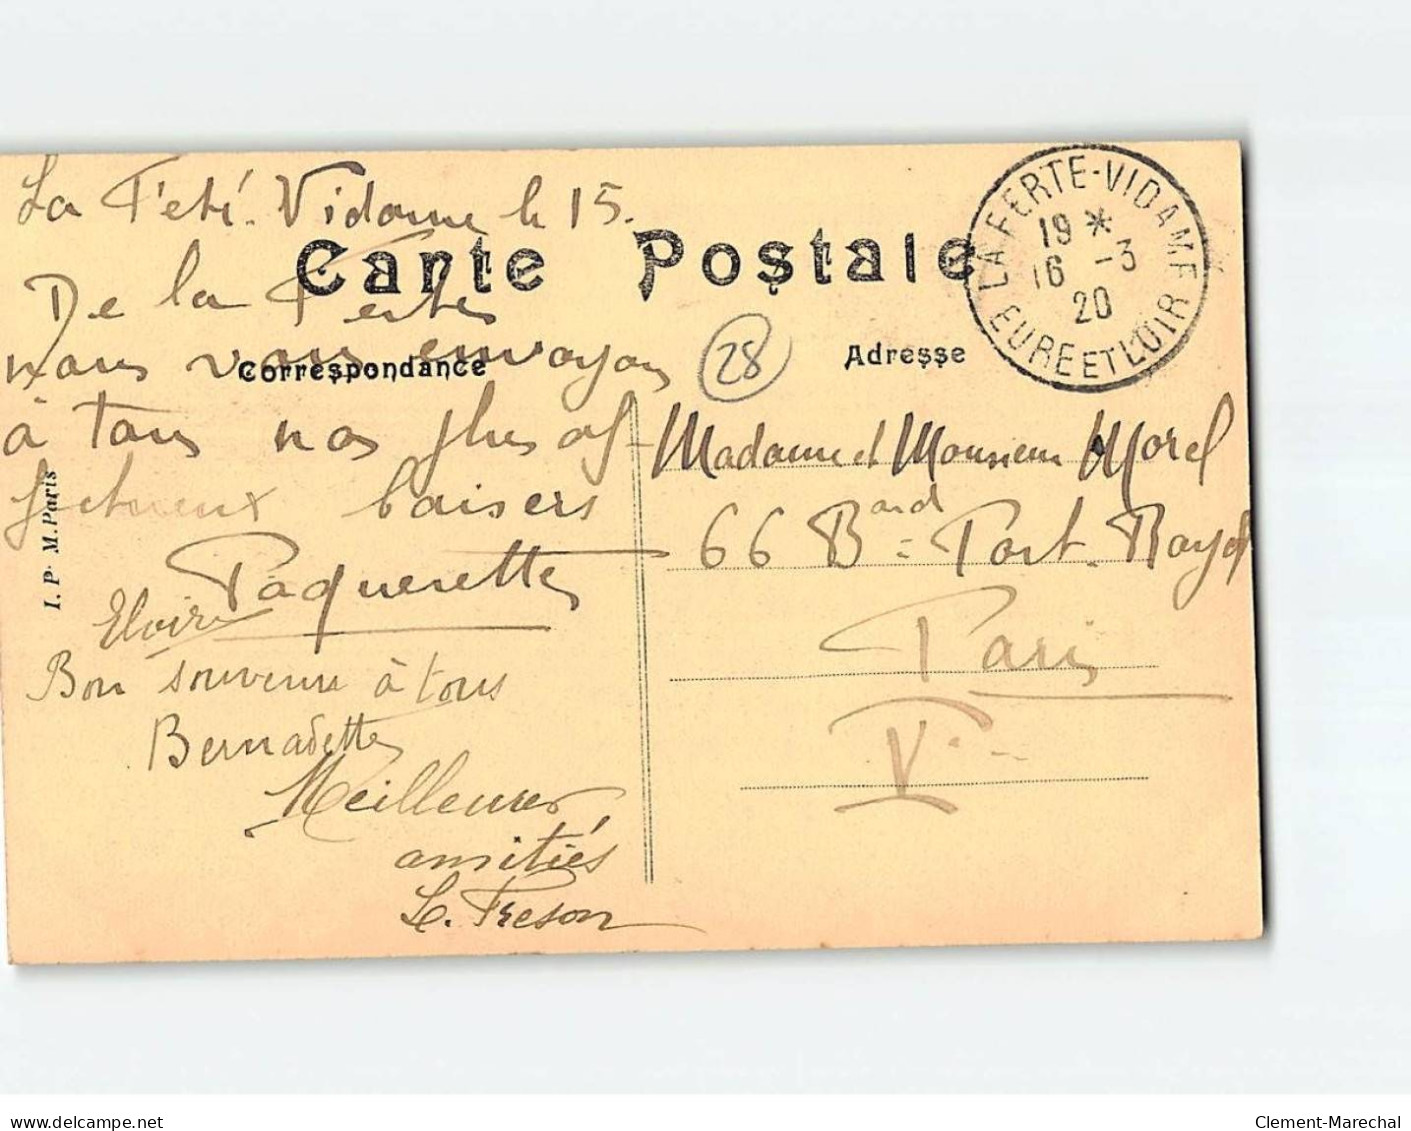 La Ferté-Vidame le 15.
Carte Postale
De la Ferté
nous vous envoyons
Correspondance
à tous nos plus af-
fectueux baisers
Paquerette
Bon souvenir à tous
Bernadette
Meilleures
amitiés
L. Freson
I. P. M. Paris
28
Adresse
Madame et Monsieur Morel
66 Bard = Port-Royal
Paris
V
LA FERTE-VIDAME
19 *
16 -3
20
EURE ET LOIR
delcampe.net
Clement-Marechal